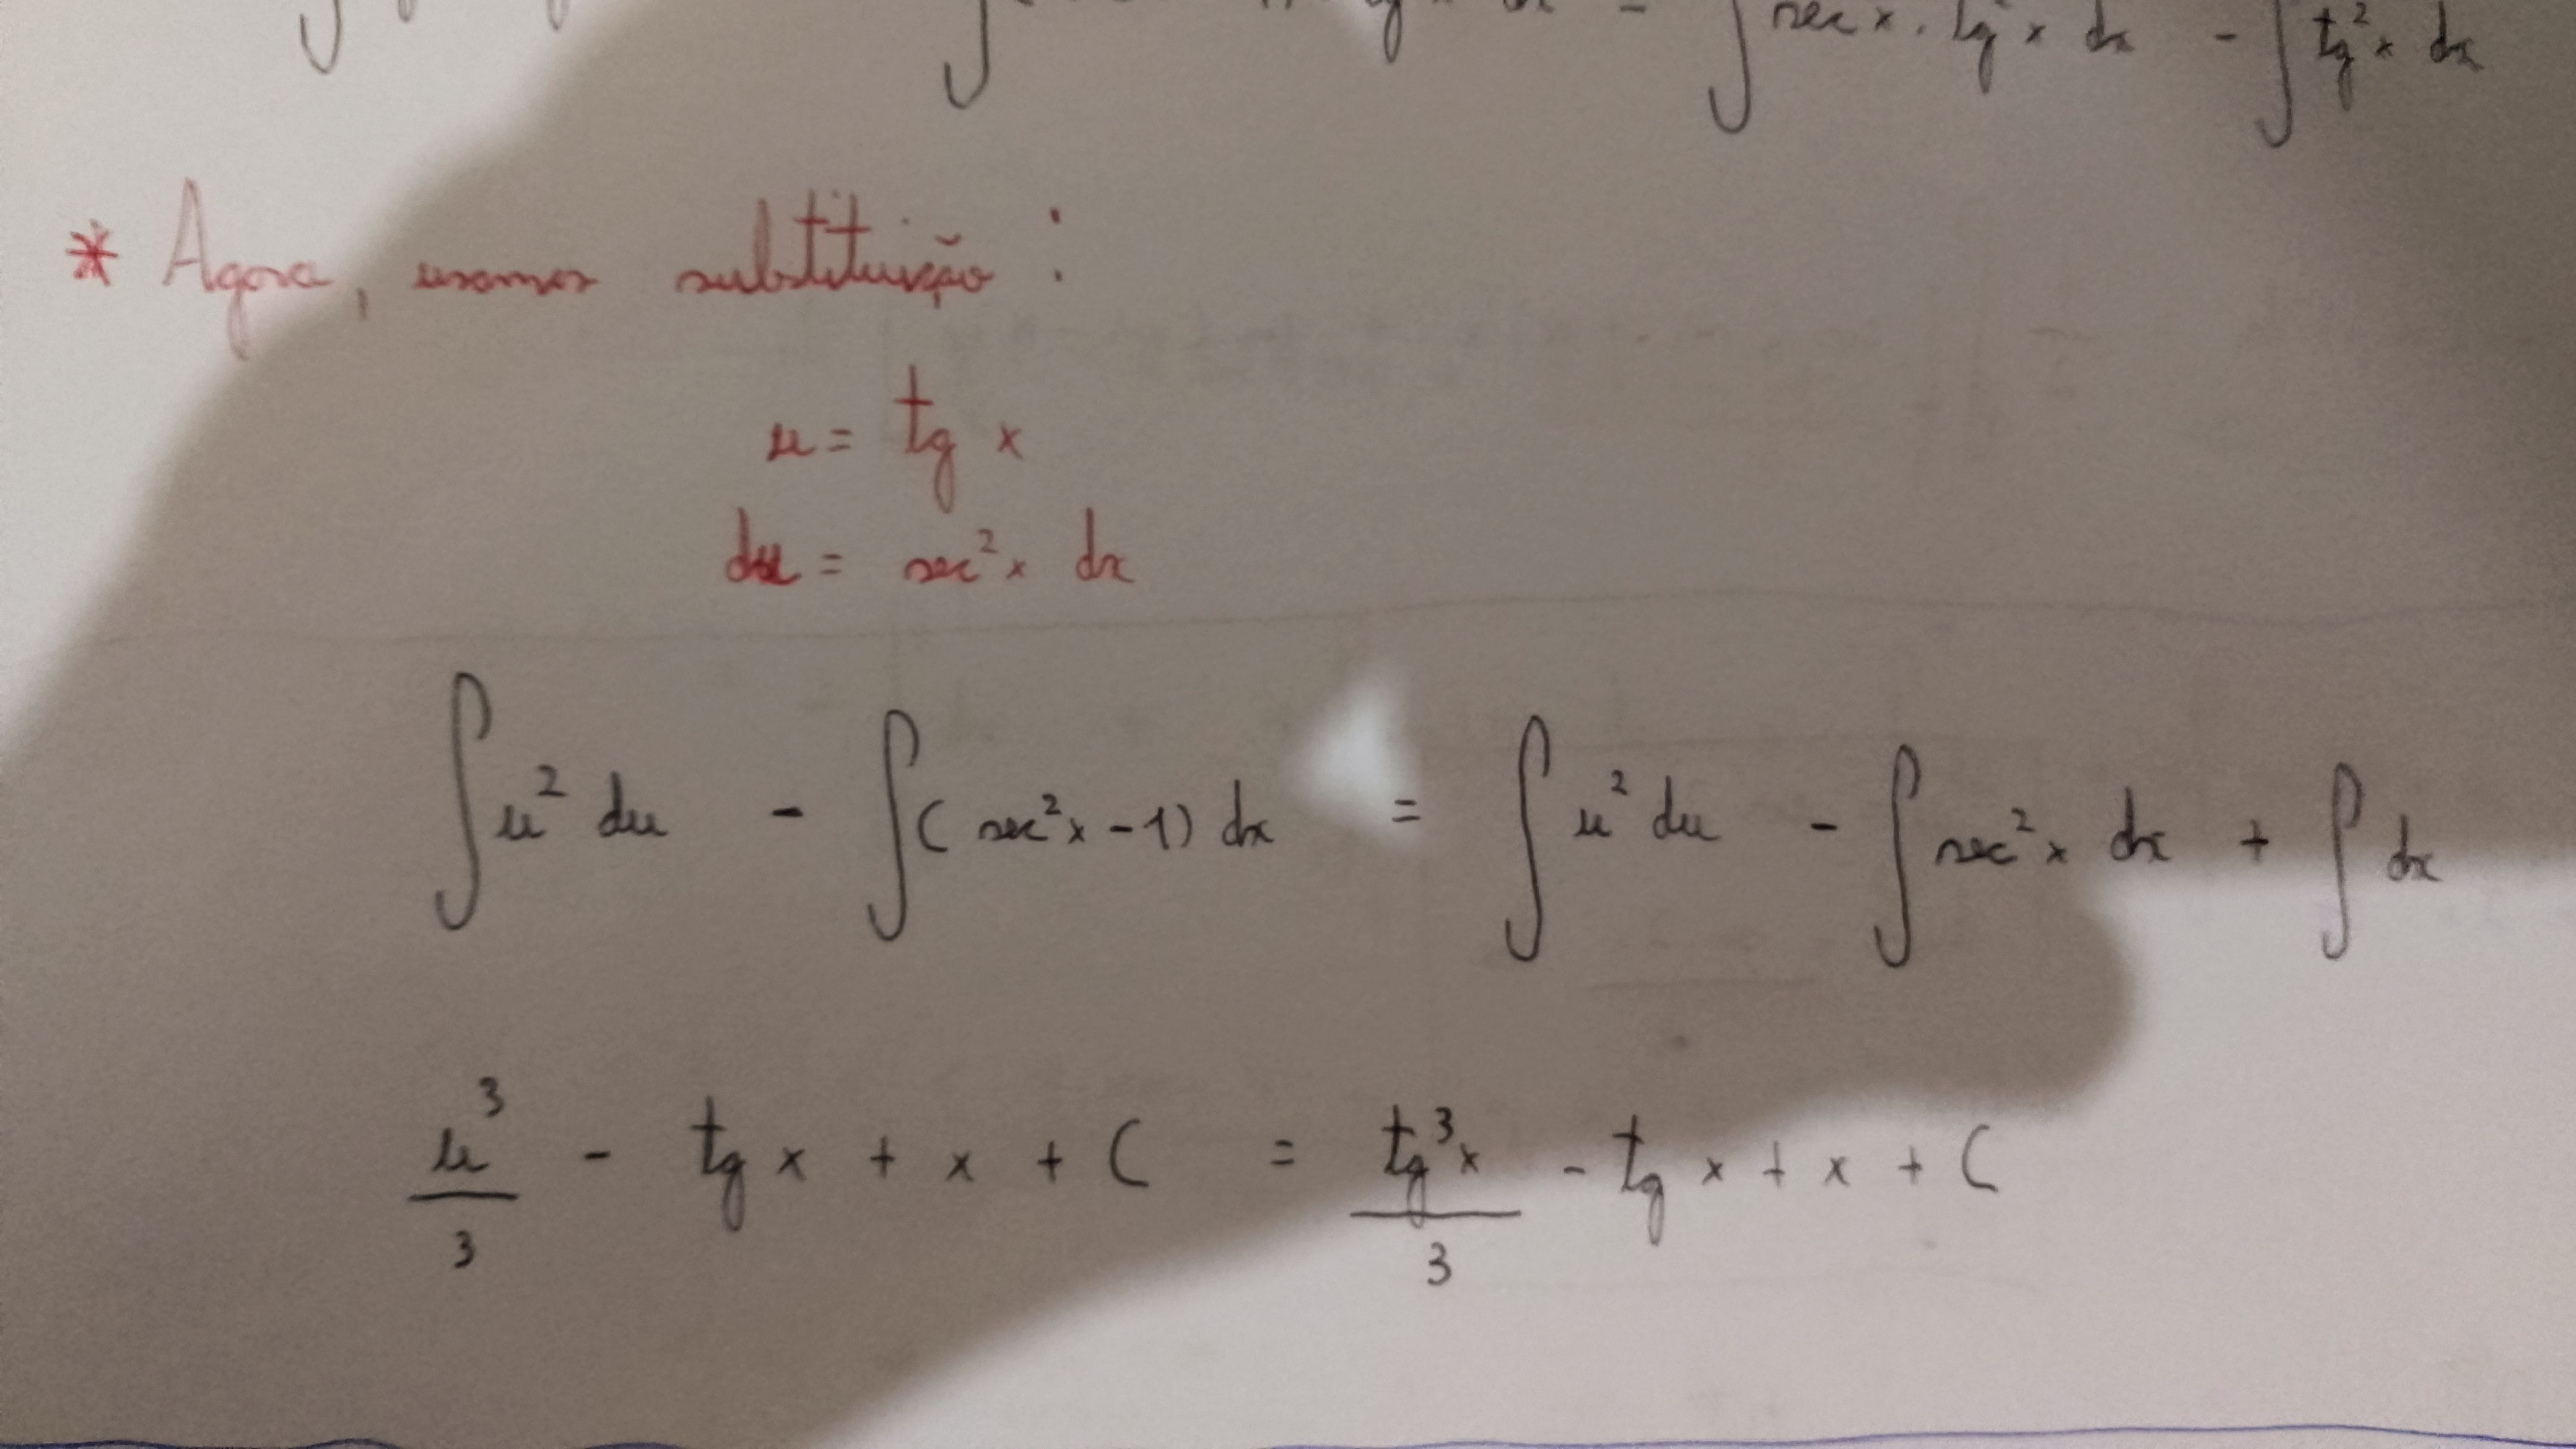 ∫ ∫ dx = ∫ sec x . tg² x dx - ∫ tg² x dx
* Agora, usamos substituição :
u = tg x
du = sec² x dx
∫ u² du - ∫ ( sec² x - 1) dx = ∫ u² du - ∫ sec² x dx + ∫ dx
u³/3 - tg x + x + C = tg³ x/3 - tg x + x + C